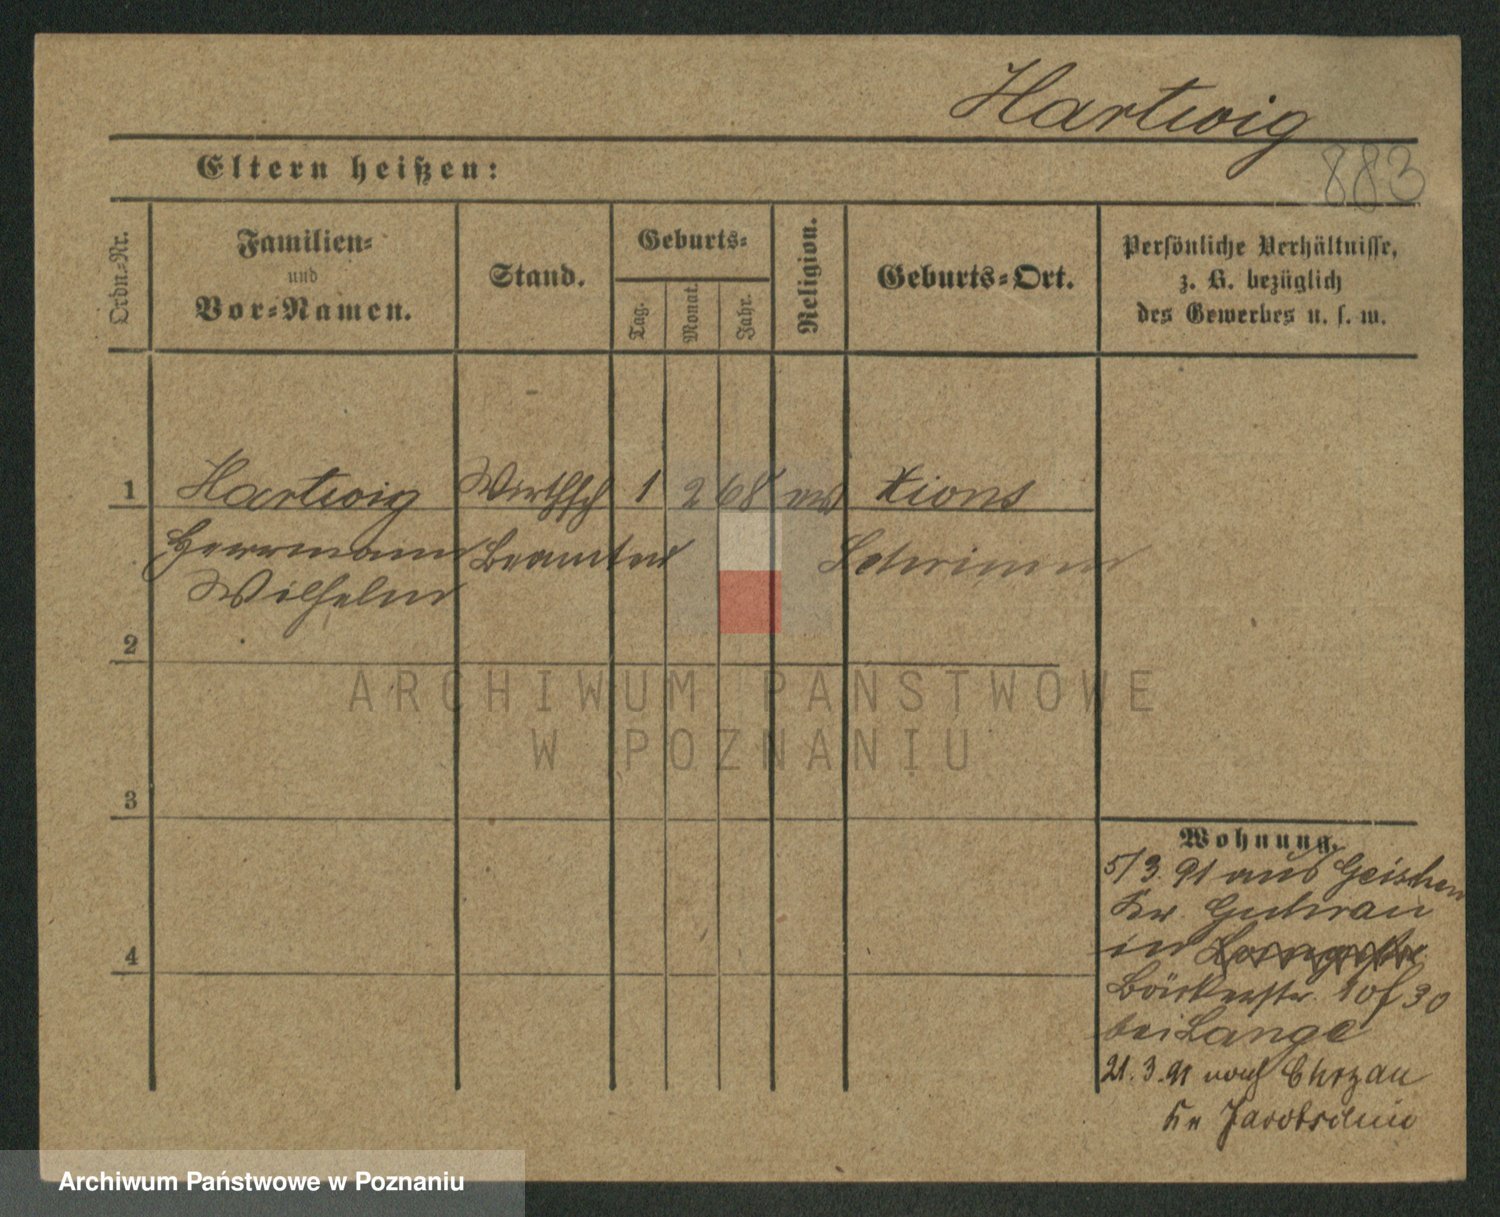 Hartwig
883
Eltern heißen:
Ordn.-Nr.
Familien-
und
Vor-Namen.
Stand.
Geburts-
Tag.
Monat.
Jahr.
Religion.
Geburts-Ort.
Persönliche Verhältnisse,
z. B. bezüglich
des Gewerbes u. s. w.
1 Hartwig Wirthsch 1 2 68 ev Xions
Herrmann Beamter Schrimm
Wilhelm
2
ARCHIWUM PAŃSTWOWE
W POZNANIU
3
4
Wohnung.
5/3. 91 aus Geischen
Kr. Guhrau
in
Bäckerstr. Hof 30
bei Lange
21.3.91 nach Chrzan
Kr Jarotschin
Archiwum Państwowe w Poznaniu